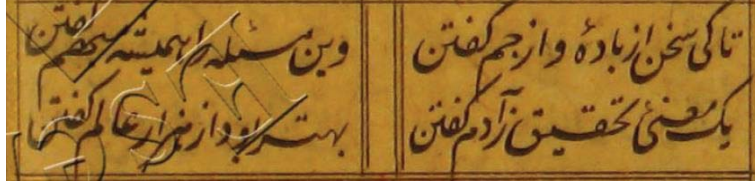 تا کی سخن از بادهٔ و از جم گفتن
وین مسئله را همیشه گفتن
یک معنی تحقیق ز آدم گفتن
بهتر بود از هزار عالم گفتن